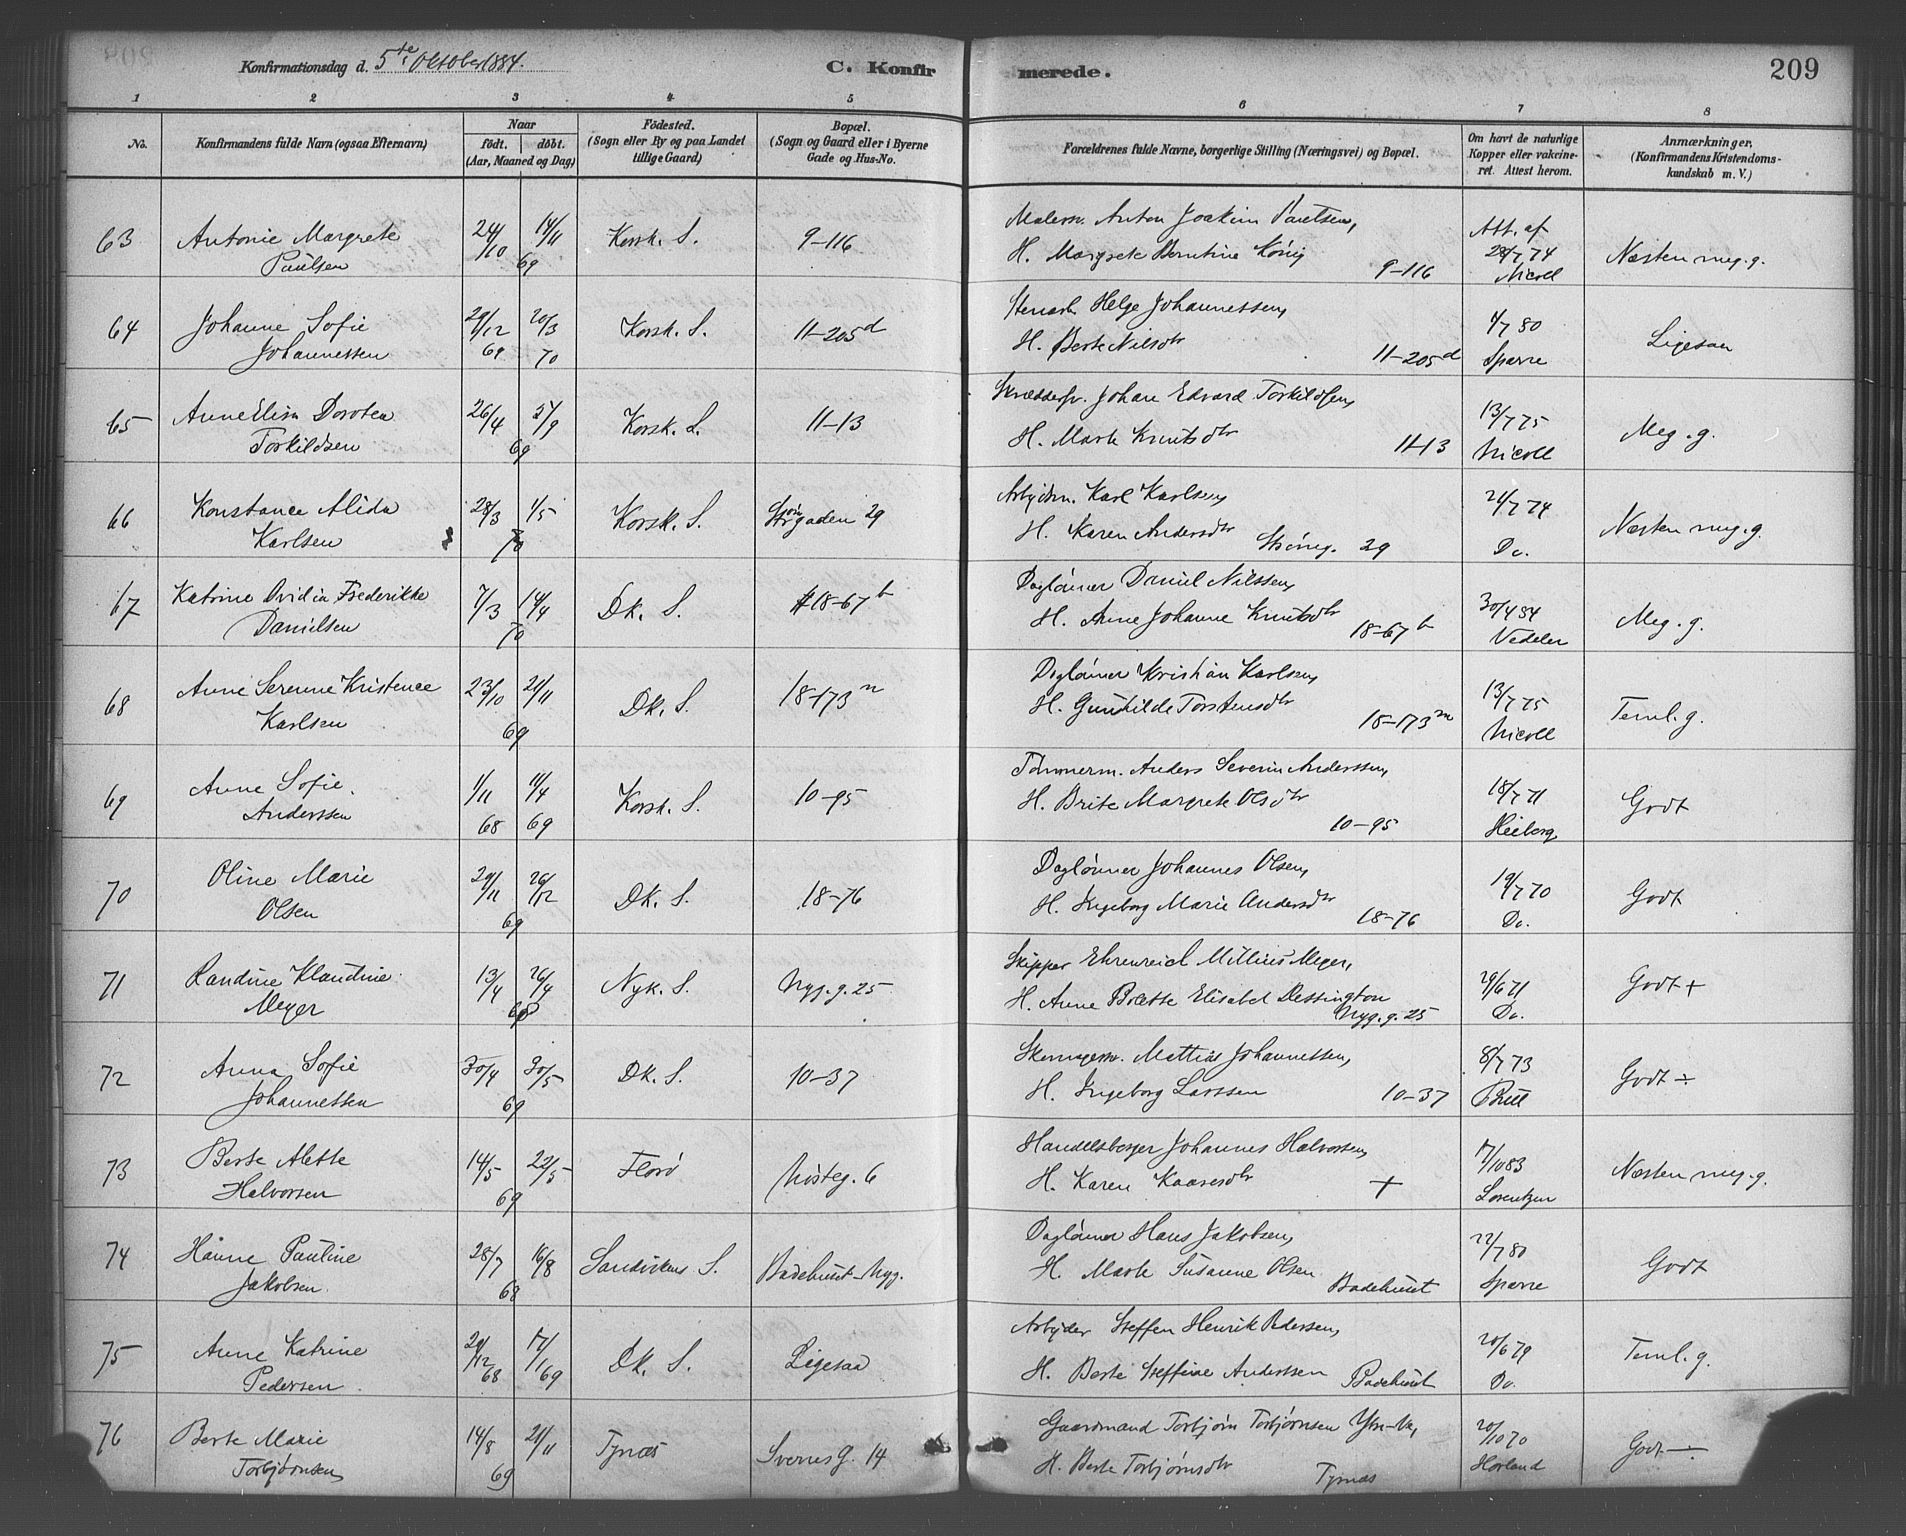 Konfirmationsdag d. 5te Oktober 1884.
C. Konfirmerede.
209
1 2 3 4 5 6 7 8
No.
Konfirmandens fulde Navn (ogsaa Efternavn)
Naar
født. døbt.
(Aar, Maaned og Dag)
Födested.
(Sogn eller By og paa Landet
tillige Gaard)
Bopæl.
(Sogn og Gaard eller i Byerne
Gade og Hus-No.
Forældrenes fulde Navne, borgerlige Stilling (Næringsvei) og Bopæl.
Om havt de naturlige
Kopper eller vakcine-
ret. Attest herom.
Anmærkninger.
(Konfirmandens Kristendoms-
kundskab m. V.)
63 Antonie Margrete 24/10 14/11 Korsk. S. 9-116 Anton Joakim Paulsen, Att. af
Paulsen 69 H. Margrete Berntine König 9-116 28/7 74 Nicoll Næsten meg. g.
64 Johanne Sofie 29/12 20/3 Korsk. S. 11-205d Helge Johannessen, 4/7 80
Johannessen 69 70 H. Berte Nilsdtr 11-205d Sparre Ligesaa
65 Anne Elisa Dorotea 26/4 5/9 Korsk. S. 11-13 Johan Edvard Torkildsen, 13/7 75
Torkildsen 69 H. Marte Knutsdtr 11-13 Nicoll Meg. g.
66 Konstance Alida 28/3 1/5 Korsk. S. Strømgaden 29 Arbejdsm. Karl Karlsen, 21/7 74
Karlsen 70 H. Karen Andersdtr Strømg. 29 Do. Næsten meg. g.
67 Katrine Ovidia Frederikke 7/3 14/4 Dk. S. 18-67b Daglønner Daniel Nilssen, 30/4 84
Danielsen 70 H. Anne Johanne Knutsdtr 18-67b Vedeler Meg. g.
68 Anne Serenne Kristence 23/10 21/11 Dk. S. 18-173m Daglønner Kristian Karlsen, 13/7 75
Karlsen 69 H. Gunhilde Torstensdtr 18-173m Nicoll Teml. g.
69 Anne Sofie 1/11 11/4 Korsk. S. 10-95 Tömmerm. Anders Severin Anderssen, 18/7 71
Anderssen 68 69 H. Brite Margrete Olsdtr 10-95 Heiberg Godt
70 Oline Marie 29/11 26/12 Dk. S. 18-76 Daglønner Johannes Olsen, 19/7 70
Olsen 69 H. Ingeborg Marie Andersdtr 18-76 Do. Godt
71 Randine Klaudine 13/4 26/4 Nyk. S. Nyg. g. 25 Skipper Ehrenreich Millius Meyer, 29/6 71
Meyer H. Anne Bolette Elisabet Dessington Nyg. g. 25 Do. Godt +
72 Anna Sofie 30/4 30/5 Dk. S. 10-37 Mattias Johannessen, 8/7 73
Johannessen 69 H. Ingeborg Larssen 10-37 Godt ÷
73 Berte Alette 14/5 22/5 Florö Nøsteg. 6 Handelsborger Johannes Halvorsen, 17/10 83
Halvorsen 69 H. Karen Kaaresdtr + Lorentzen Næsten meg. g.
74 Hanne Pauline 28/7 16/8 Sandvikens S. Badehuset Nyg. Daglønner Hans Jakobsen, 22/7 80
Jakobsen. 68 H. Marte Susanne Olsen Badehuset Sparre Godt
75 Anne Katrine 29/12 17/1 Dk. S. Ligesaa Arbejder Steffen Henrik Pedersen, 20/6 79
Pedersen 68 69 H. Berte Steffine Anderssen Badehuset Do. Teml. g.
76 Berte Marie 14/8 21/11 Tysnæs Sverresg. 14 Gaardmand Torbjørn Torbjørnsen 20/10 70
Torbjørnsen 69 H. Berte Torbjørnsdtr Tysnæs Horland Godt ÷